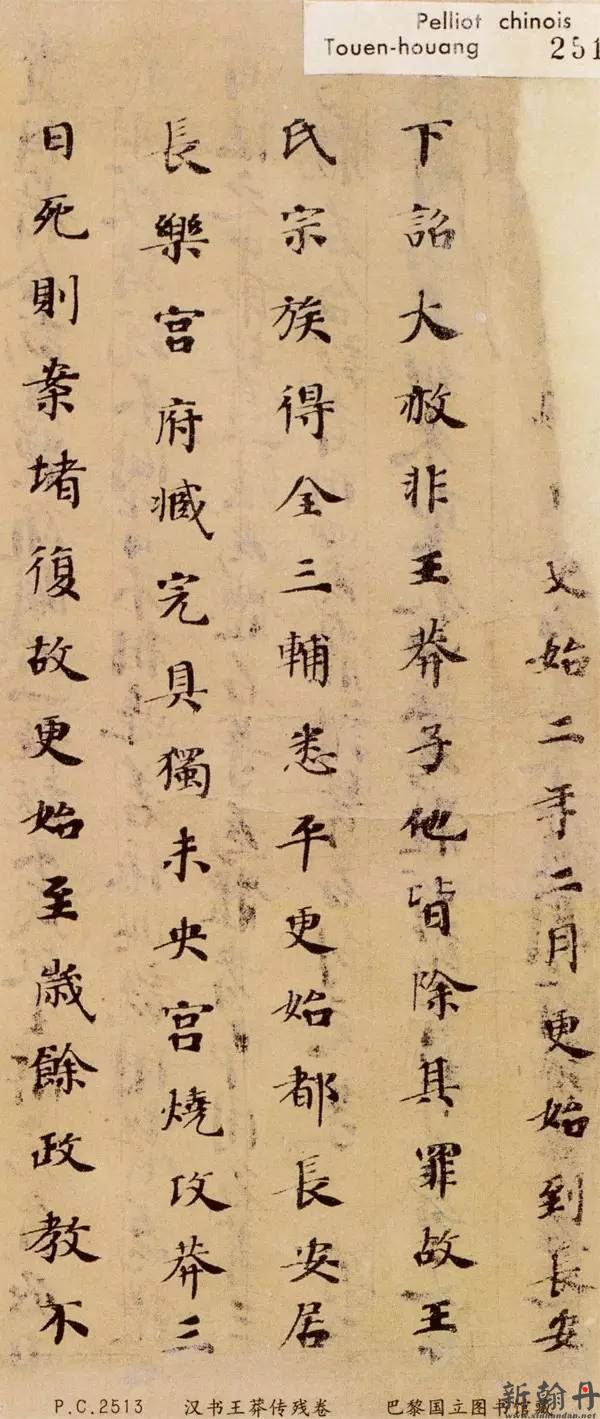 Pelliot chinois
Touen-houang 251
始二年二月更始到長安
下詔大赦非王莽子他皆除其罪故王
氏宗族得全三輔悉平更始都長安居
長樂宮府臧完具獨未央宮燒攻莽三
日死則案堵復故更始至歲餘政教不
P.C.2513 汉书王莽传残卷 巴黎国立图书馆藏
新翰丹
www.xinhandan.net